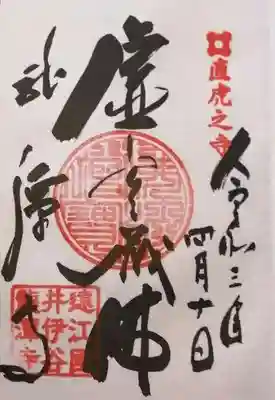 直虎之寺
令和三年
四月十日
虚空蔵佛
龍潭寺
遠江國
井伊谷
龍潭寺